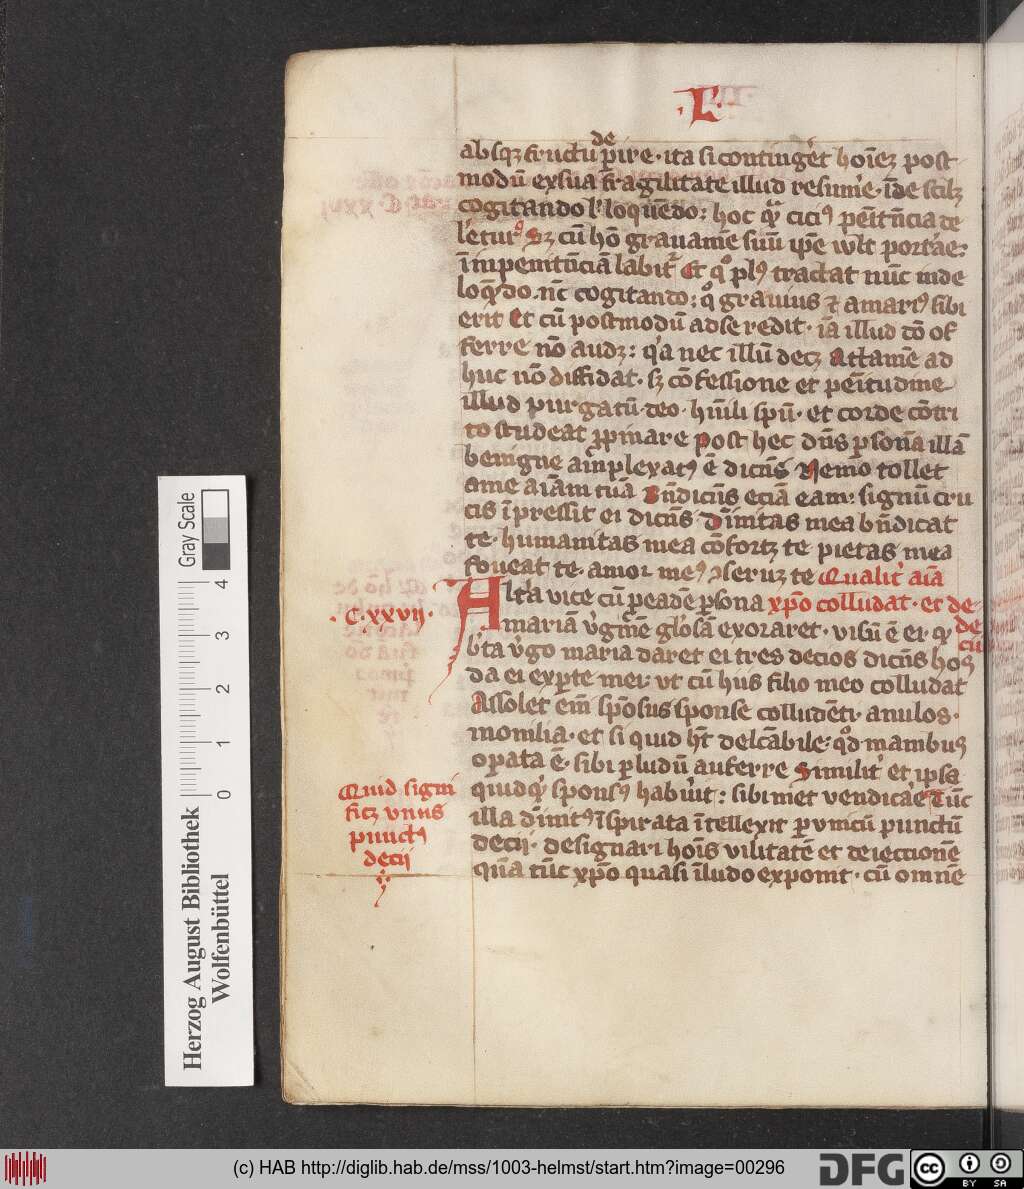 .L.
absqꝫ fructu ꝑire · ita si contingēt hoīeꝫ post
de
modū ex sua fragilitate illud resum̄e · īde scilꝫ
cogitando l' loquēdo: hoc
penit̄ncia de
gͣuamē suū ip̄e
portāe:
īinpenitūciā labitͬ Et
tractat nūc inde
cogitando: qͦ grauius ⁊ amariꝰ sibi
erit Et cū postmodū ad se redit · iā illud dō of
ferre nō audꝫ: qͥa nec illū decꝫ Attamē ad
huc nō diffidat · sꝫ cōfessione et penitudine
illud purgatū · deo · hūili spū · et corde cōtri
to studeat ꝓpinare Post hec dn̄s ꝑsonā illā
benigne amplexatꝰ ē dicēs Nemo tollet
a me aīam tuā Bn̄dicēs eciā eam: signū cru
cis īpressit ei dicēs · Diuinitas mea bn̄dicat
te · humanitas mea cōfortꝫ te pietas mea
foueat te · amor meꝰ ↄseruꝫ te Qualit' aīa
.C.xxvij.
Alt͛a vice cū ꝑ eadē ꝑsona xpō colludat · et de-
mariā v̓gīnē gl̓osā exoraret · visū ē ei · qͥ
de
ciis
bt̄a v̓go maria daret ei tres decios dicēs hos
da ei ex ꝑte mei · vt cū hiis filio meo colludat
Assolet em̄ spōsus sponse colludēti · anulos ·
monilia · et si quid hꝫ delc̄abile: qd̓ manibus
oꝑata ē · sibi ꝑ ludū auferre Similit' et ipsa
quidqͥ sponsꝰ habūit: sibimet vendicāe Tūc
Quid signi
ficꝫ vnus
punctꝰ
decij
illa diuīitꝰ īspirata ītellexit ꝑ vnicū punctū
decij · designari hoīs vilitatē et deiectionē
quā tūc xpō quasi ī ludo exponit · cū omnē
Gray Scale
4
3
2
1
0
Herzog August Bibliothek
Wolfenbüttel
(c) HAB http://diglib.hab.de/mss/1003-helmst/start.htm?image=00296
DFG
cc
BY SA